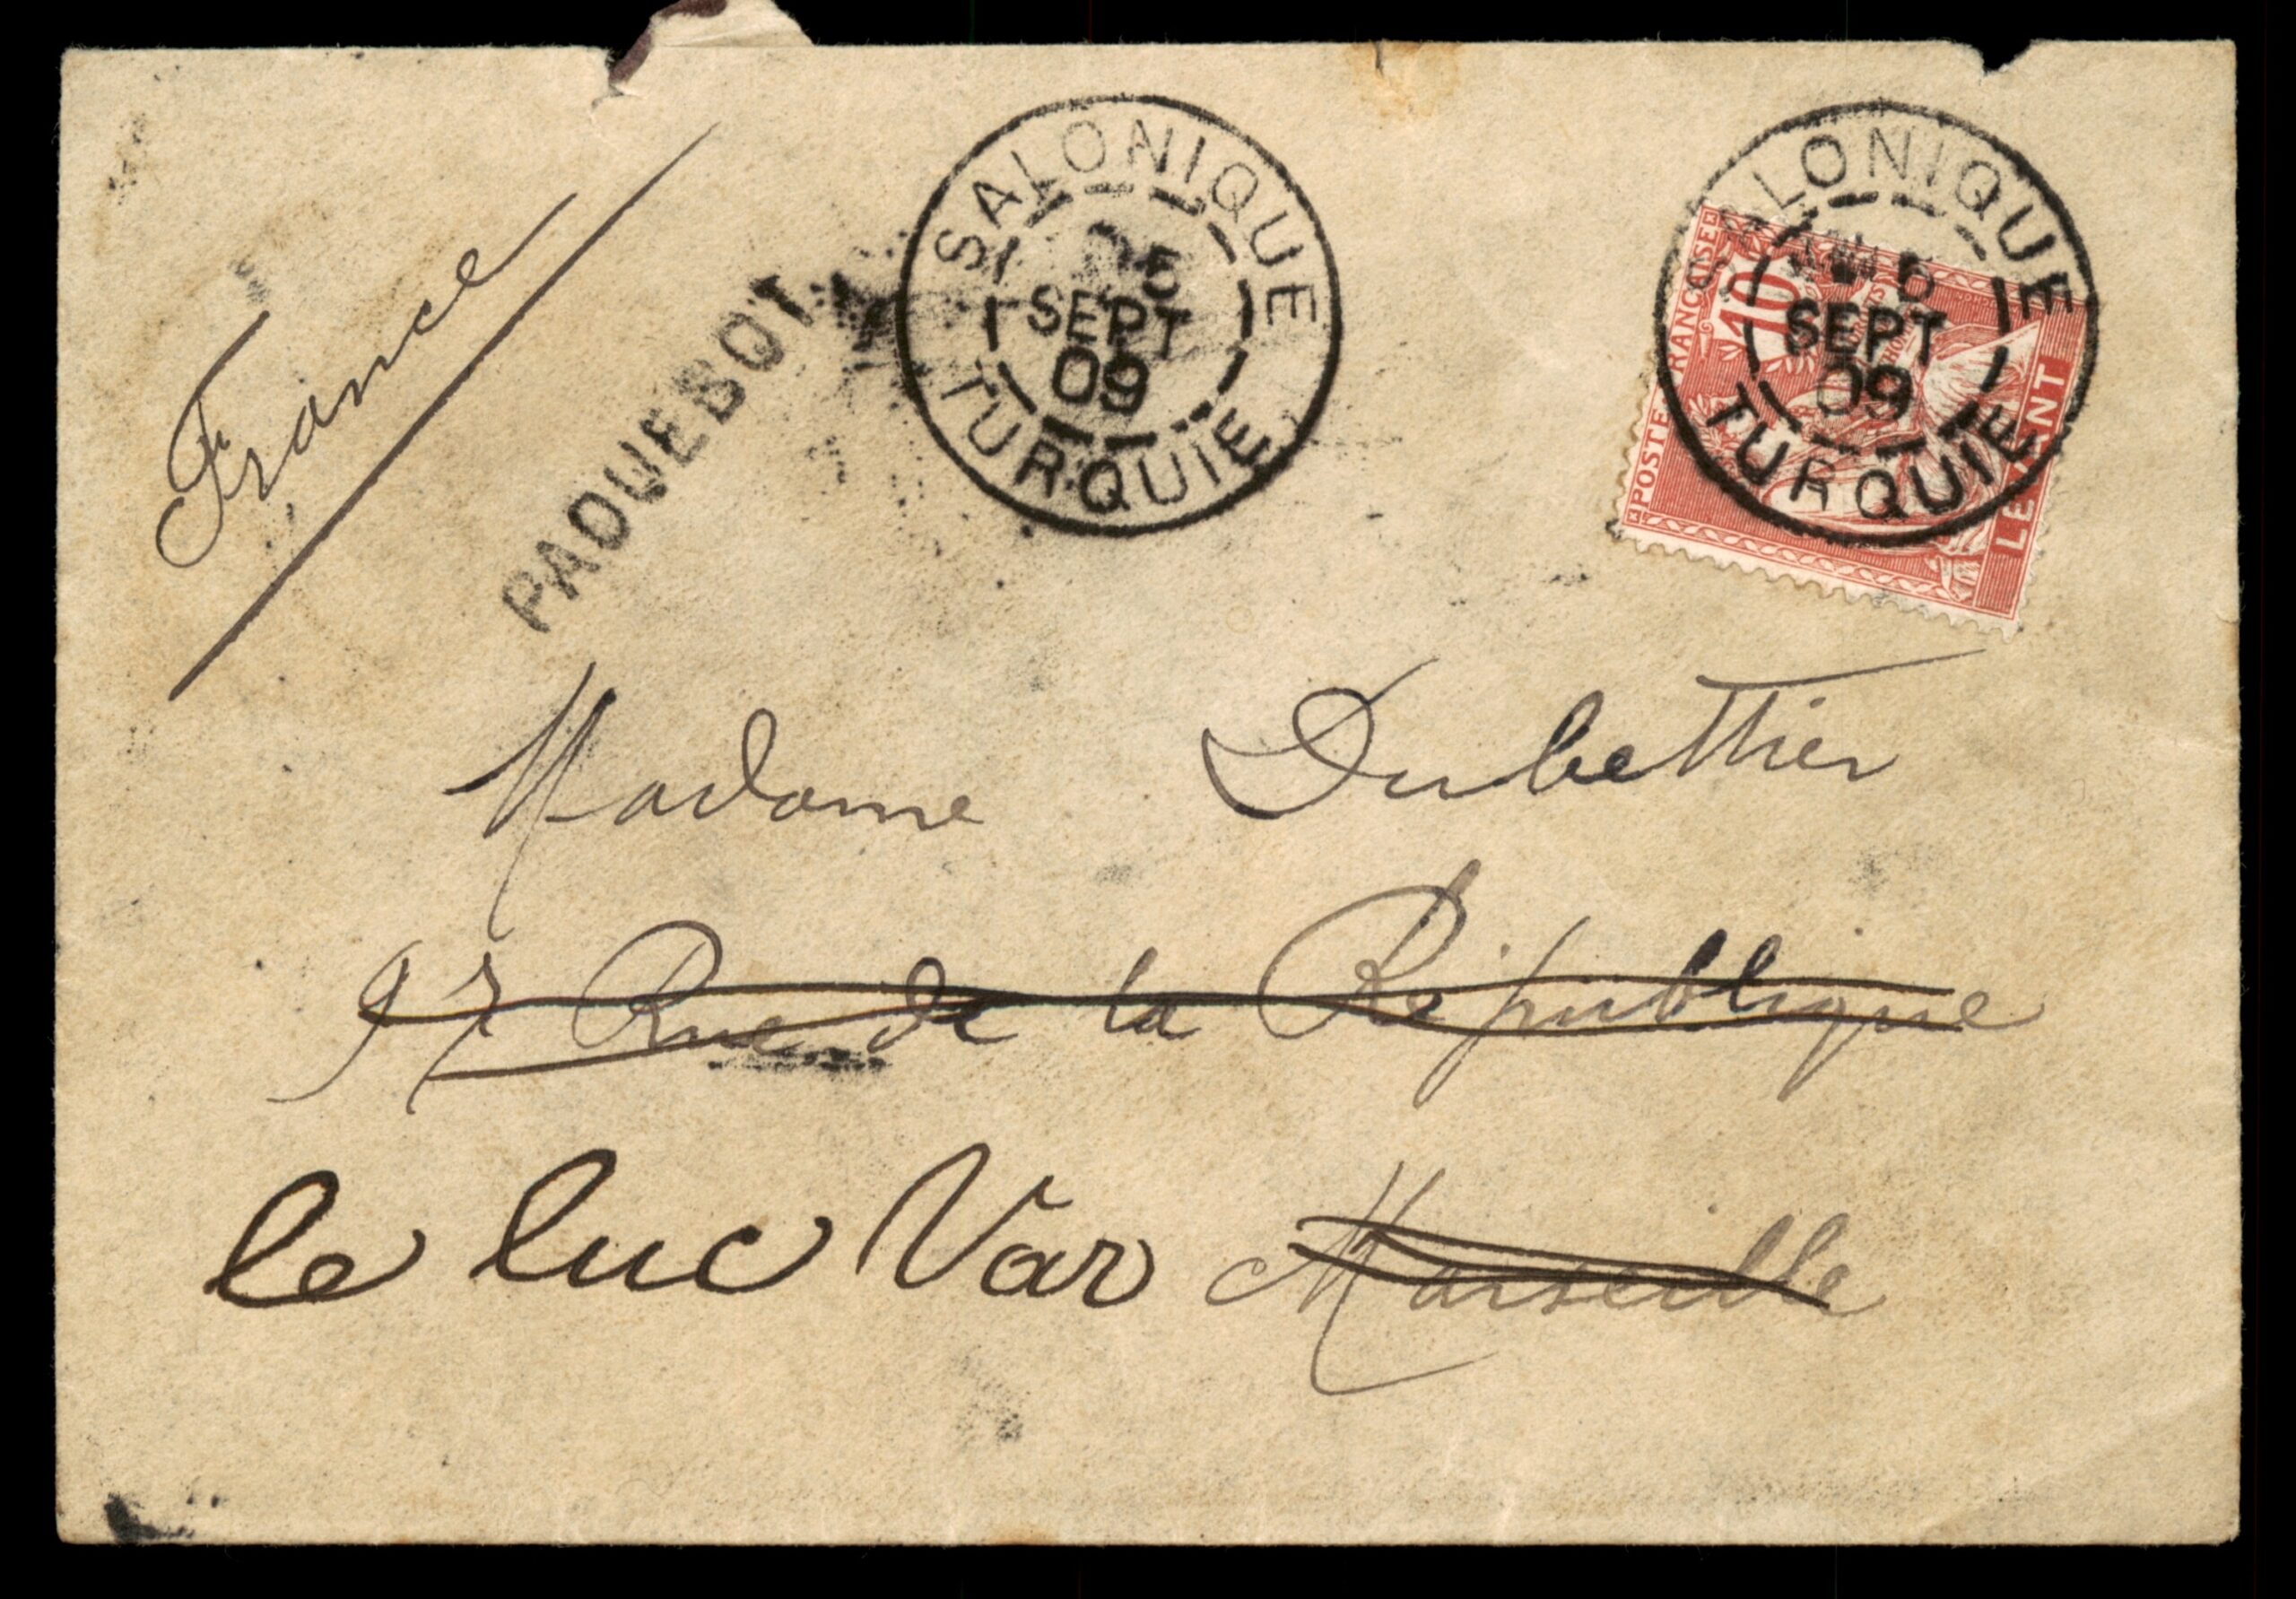 France
PAQUEBOT
SALONIQUE
5
SEPT
09
TURQUIE
SALONIQUE
5
SEPT
09
TURQUIE
POSTE FRANÇAISE
10
LEVANT
Madame Dubettier
97 Rue de la République
le luc Var Marseille